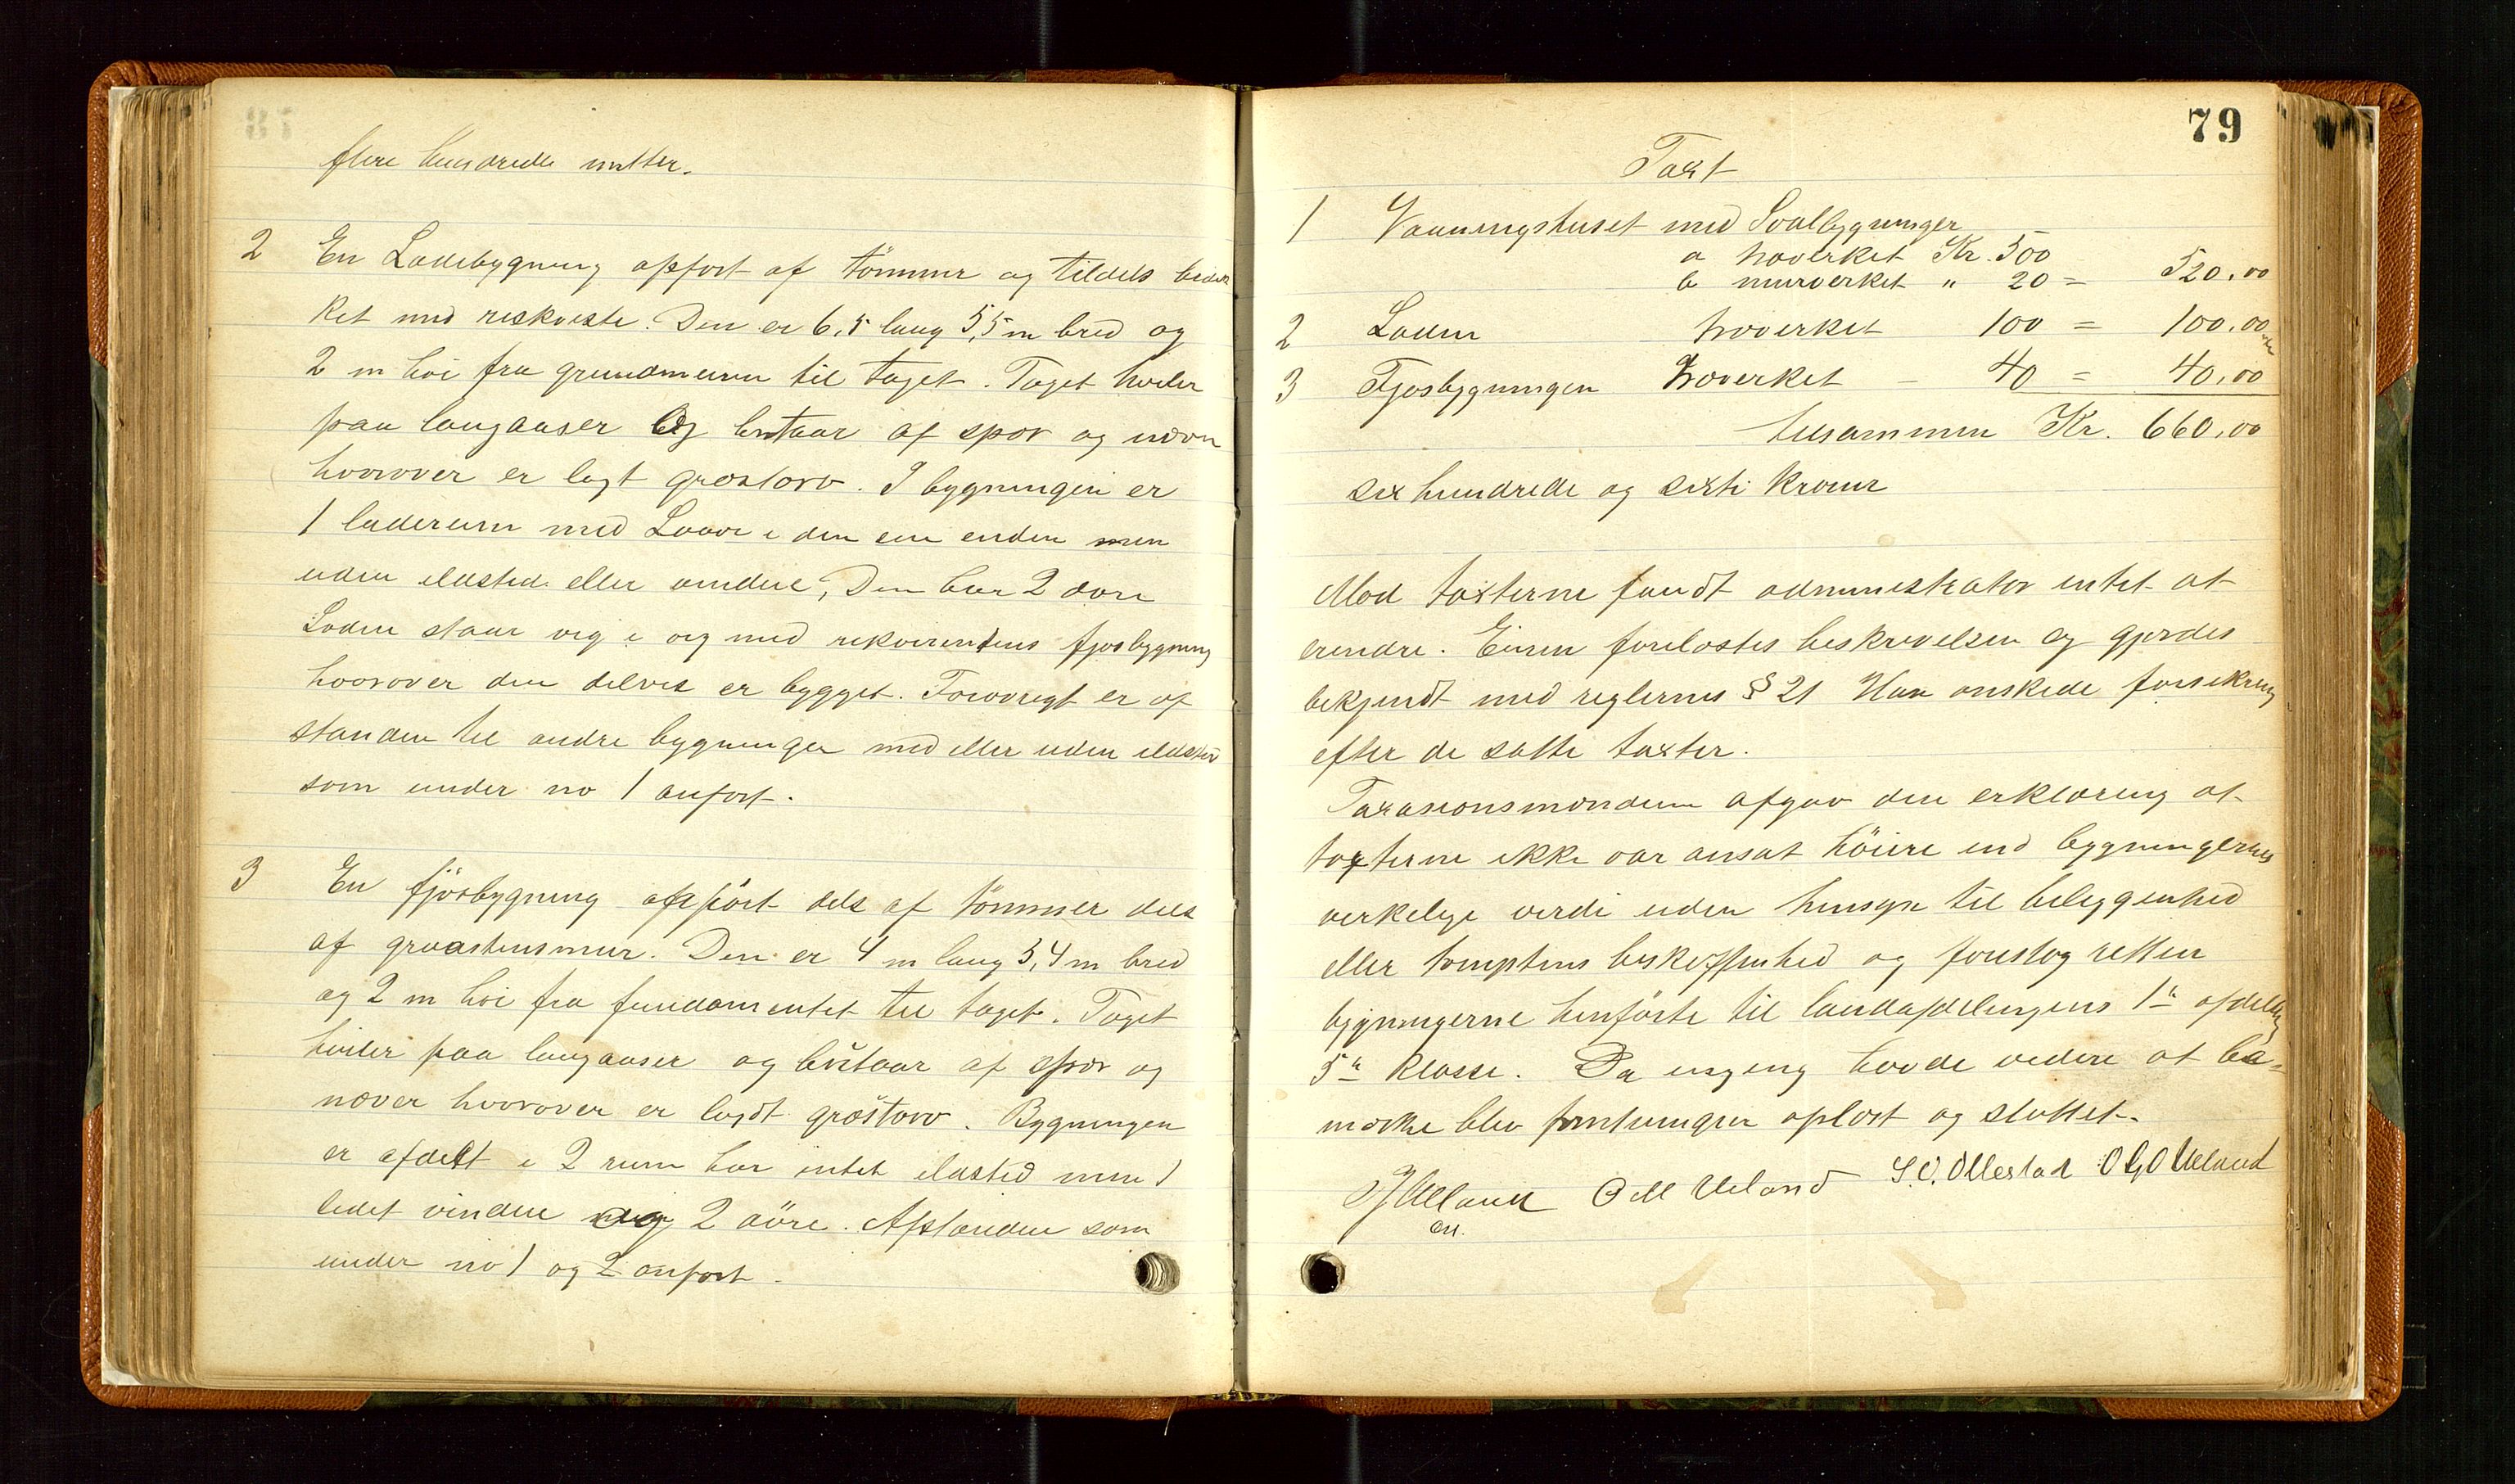 flere hundrede metter.
2 En Ladebygning opført af tömmer og tildels bedæk
ket med reskviste. Den er 6,5 lang 5,5 m bred og
2 m høi fra grundmuren til taget. Taget hviler
paa langaaser og bestaar af spor og næver
hvorover er lagt græstorv. I bygningen er
1 laderum med Laave i den ene enden men
uden ildsted eller vinduer, Den har 2 døre
Laden staar veg i veg med rekvirentens fjøsbygning
hvorover den delvis er bygget. Forøvrigt er af
standen til andre bygninger med eller uden ildsted
som under no 1 anført.
3 En fjösbygning opfört dels af tömmer dels
af graastensmur. Den er 4 m lang 3,4 m bred
og 2 m høi fra fundamentet til taget. Taget
hviler paa langaaser og bestaar af spor og
næver hvorover er lagdt græstorv. Bygningen
er afdelt i 2 rum har intet ildsted men 1
lidet vindue og 2 döre. Afstanden som
under no 1 og 2 anført.
79
Taxt
1 Vaaningshuset med Svalbygninger
a træverket Kr. 500
b murverket " 20 = 520,00
2 Laden træverket 100 = 100,00
3 Fjøsbygningen Træverket - 40 = 40,00
tilsammen Kr. 660,00
sex hundrede og sexti kroner
Mod taxterne fandt administrator intet at
erindre. Eieren forelæstes beskrivelsen og gjordes
bekjendt med reglernes § 21 Han ønskede forsikring
efter de satte taxter.
Taxasionsmændene afgav den erklæring at
taxterne ikke var ansat höiere end bygningernes
verkelige verdi uden hensyn til beliggenhed
eller tomptens beskaffenhed og foreslog retten
bygningerne henförte til landafdelingens 1ste afdeling
5te klasse. Da ingen havde videre at be-
mærke blev forretningen oplæst og sluttet.
O M Ueland S. O. Ollestad O G O Ueland